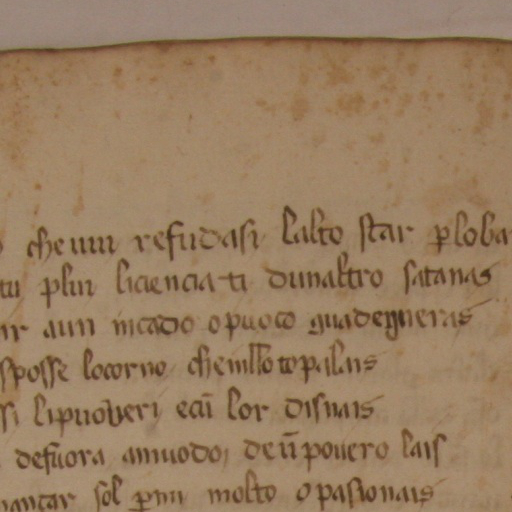 che vui refudasi lalto star p loba
tu p lui licencia ti dunaltro satanas
ir a un incado o puoco guadegneras
sposse lo corno che in lo to palais
si li puoveri e cu lor disnais
de fuora a muodo de u povero lais
mançar sol p mi molto o pasionais